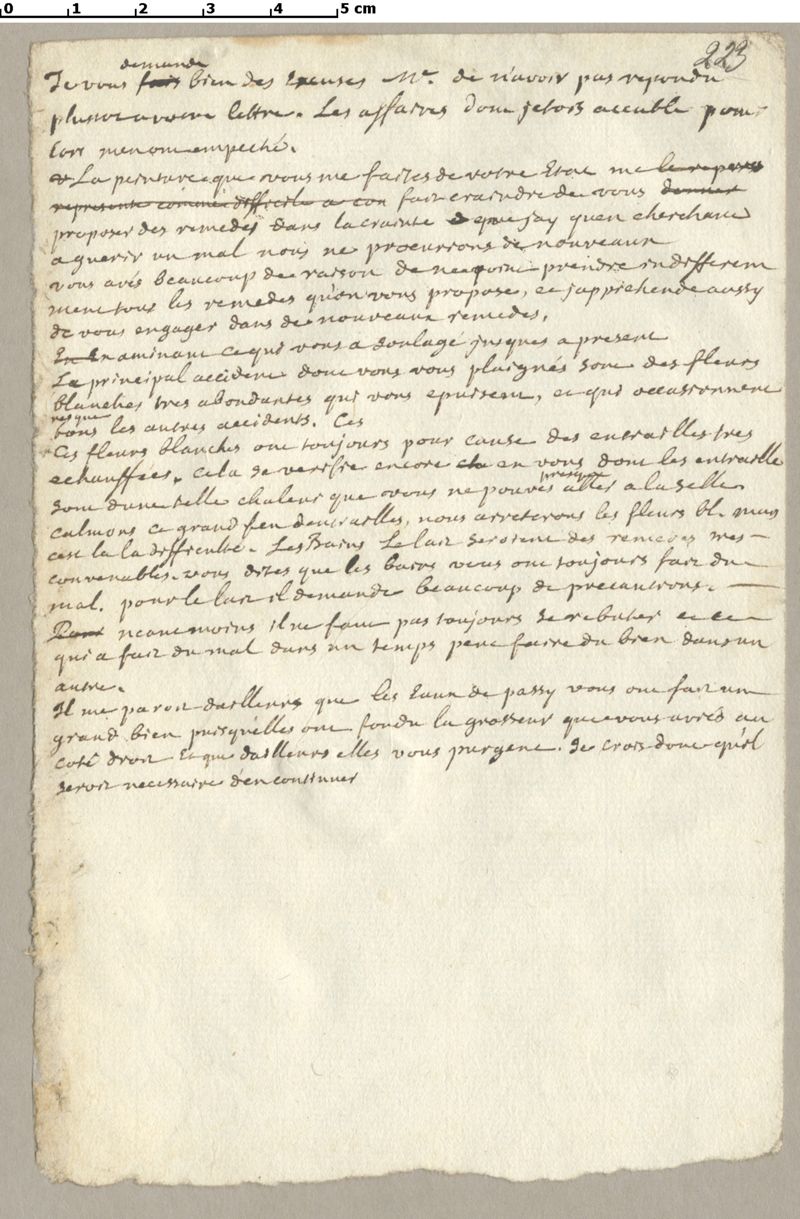 0 1 2 3 4 5 cm
223
demande
Je vous fais bien des Excuses Mr. de n'avoir pas repondu
plustot a votre lettre. Les affaires dont jetois accablé pour
lors m'en ont empeché.
La peinture que vous me faites de votre Etat me le repres
represente comme difficile a con fait craindre de vous donner
proposer des remedes dans la crainte que jay quen cherchant
a guerir un mal nous ne procurrions de nouveaux
vous avés beaucoup de raison de ne point prendre indifferem
ment tous les remedes qu'on vous propose, et j'apprehende aussy
de vous engager dans de nouveaux remedes.
En Examinant ce qui vous a soulagé jusques a present
Le principal accident dont vous vous plaignés sont des fleurs
blanches tres abondantes qui vous epuisent, et qui occasionnent
presque
tous les autres accidents. Ces
Ces fleurs blanches ont toujours pour cause des entrailles tres
echauffées. Cela se verifie encore en vous dont les entrailles
presque
sont d'une telle chaleur que vous ne pouvés aller a la selle.
calmons ce grand feu d'entrailles, nous arreterons les fleurs bl. mais
c'est la la difficulté. Les Bains Le lait seroient des remedes tres
convenables. vous dites que les bains vous ont toujours fait du
mal. pour le lait il demande beaucoup de precautions.
neantmoins il ne faut pas toujours se rebuter et ce
qui a fait du mal dans un temps peut faire du bien dans un
autre.
Il me paroit dailleurs que les Eaux de passy vous ont fait un
grand bien puisqu'elles ont fondu la grosseur que vous aviés au
coté droit Et que d'ailleurs elles vous purgent. Je crois donc qu'il
seroit necessaire d'en continuer